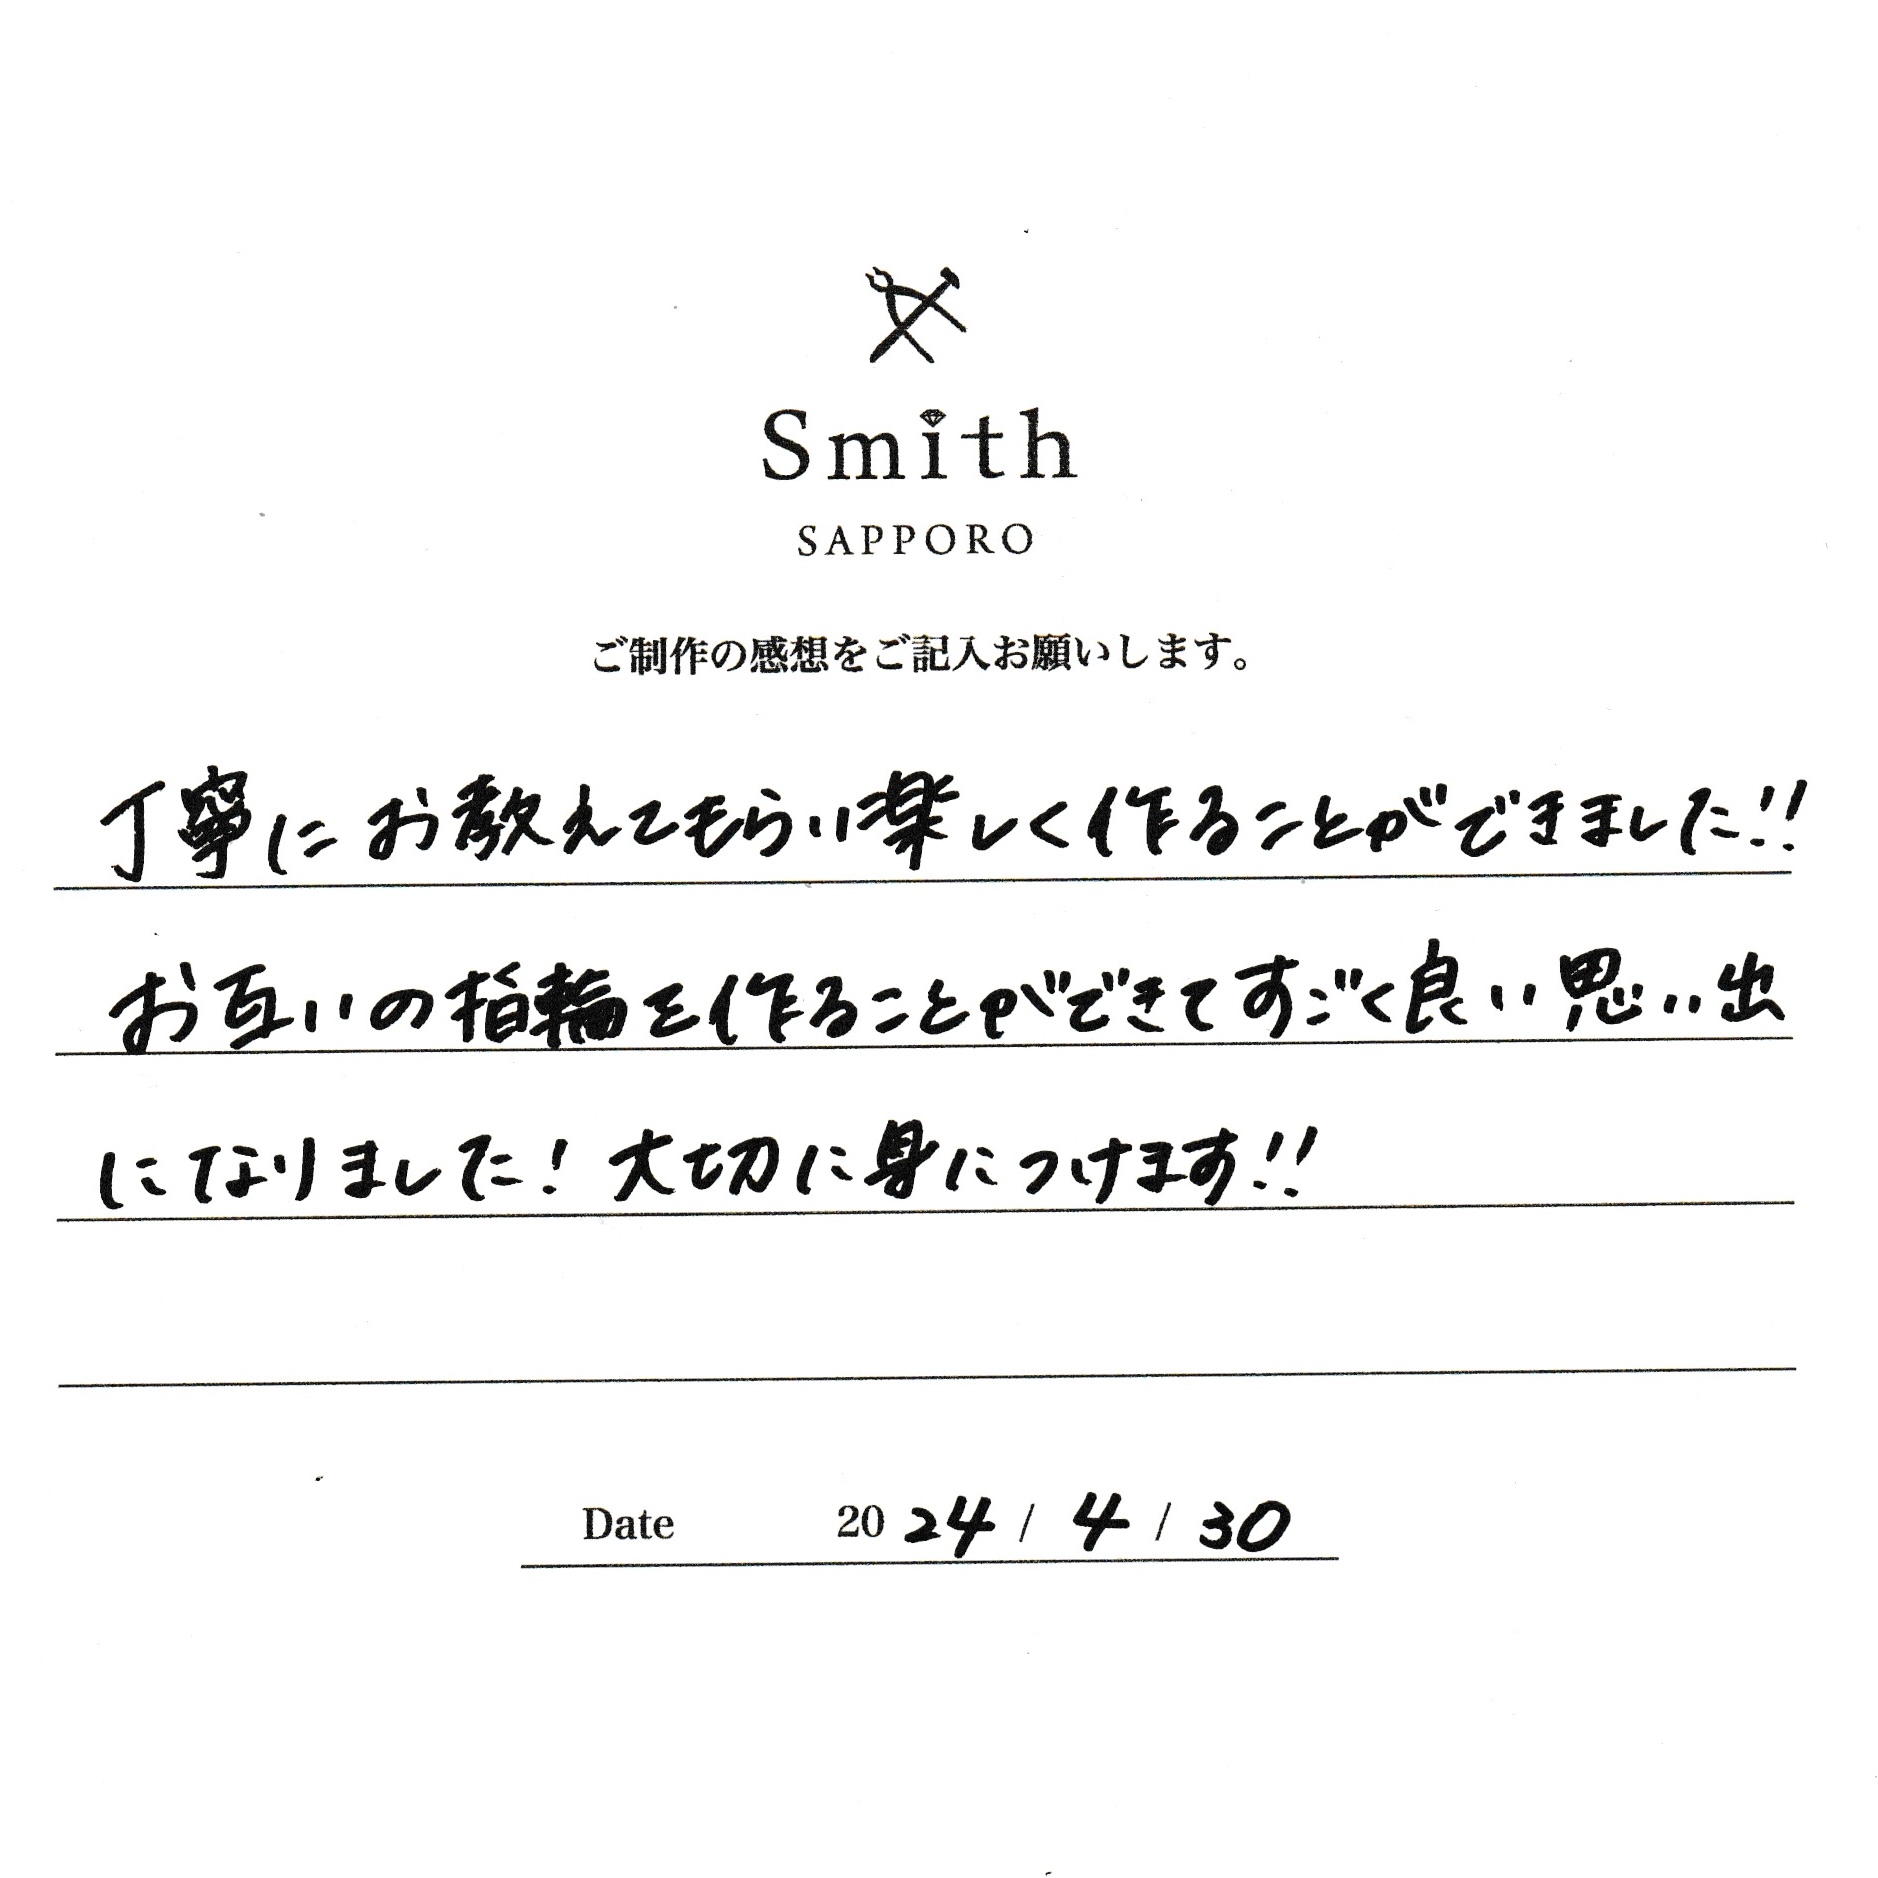 Smith
SAPPORO
ご制作の感想をご記入お願いします。
丁寧にお教えてもらい楽しく作ることができました!!
お互いの指輪を作ることができてすごく良い思い出
になりました! 大切に身につけます!!
Date 2024 / 4 / 30